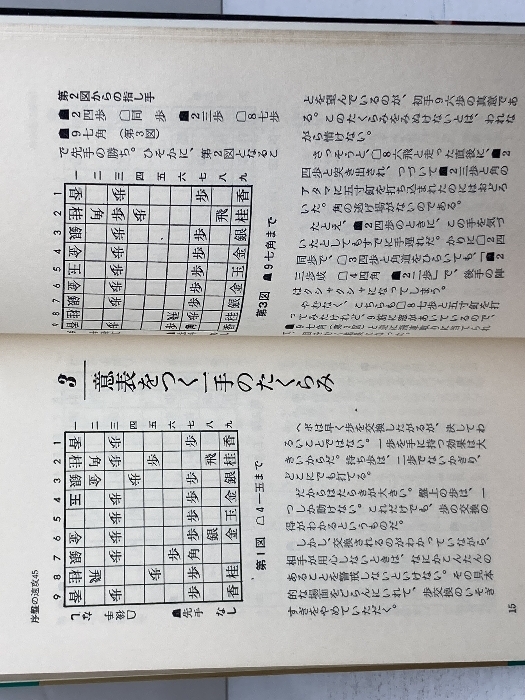 第2図からの指し手
☗2四歩 ☖同 歩 ☗2三歩 ☖8七歩
☗9七角 (第3図)
で先手の勝ち。ひそかに、第2図となるこ
第3図 ☗9七角まで
とを望んでいるのが、初手9六歩の真意であ
る。このたくらみをみぬけないとは、われな
がら情けない。
さっそうと、☖8六飛と走った直後に、☗2
四歩と突き出され、つづいて☗2三歩と角の
アタマに五寸釘を打ち込まれたのにはおどろ
いた。角の逃げ場がないのである。
たとえ、☗2四歩のときに、この手を気づ
いたとしてもすでに手遅れだ。かりに☖2四
同歩で、☖3四歩と角道をひらいても、「☗2
三歩成 ☖4四角 ☗2二と」で、後手の陣
はクシャクシャになってしまう。
やむなく、こちらも☖8七歩と五寸釘を打
ってみたけれど、9筋に路があいているので、
序盤の速攻45
3 意表をつく一手のたくらみ
第1図 ☖4一玉まで
☖後手 なし
☗先手 なし
ヘボは早く歩を交換したがるが、決してわ
るいことではない。一歩を手に持つ効果は大
きいからだ。持ち歩は、二歩でないかぎり、
どこにでも打てる。
だからはたらきが大きい。盤上の歩は、一
つしか動けない。これだけでも、歩の交換の
得がわかるというものだ。
しかし、交換されるのがわかっていながら、
相手が用心しないときは、なにかこんたんの
あることを警戒しないといけない。その見本
的な場面をごらんにいれて、歩交換のいそぎ
すぎをやめていただく。
15